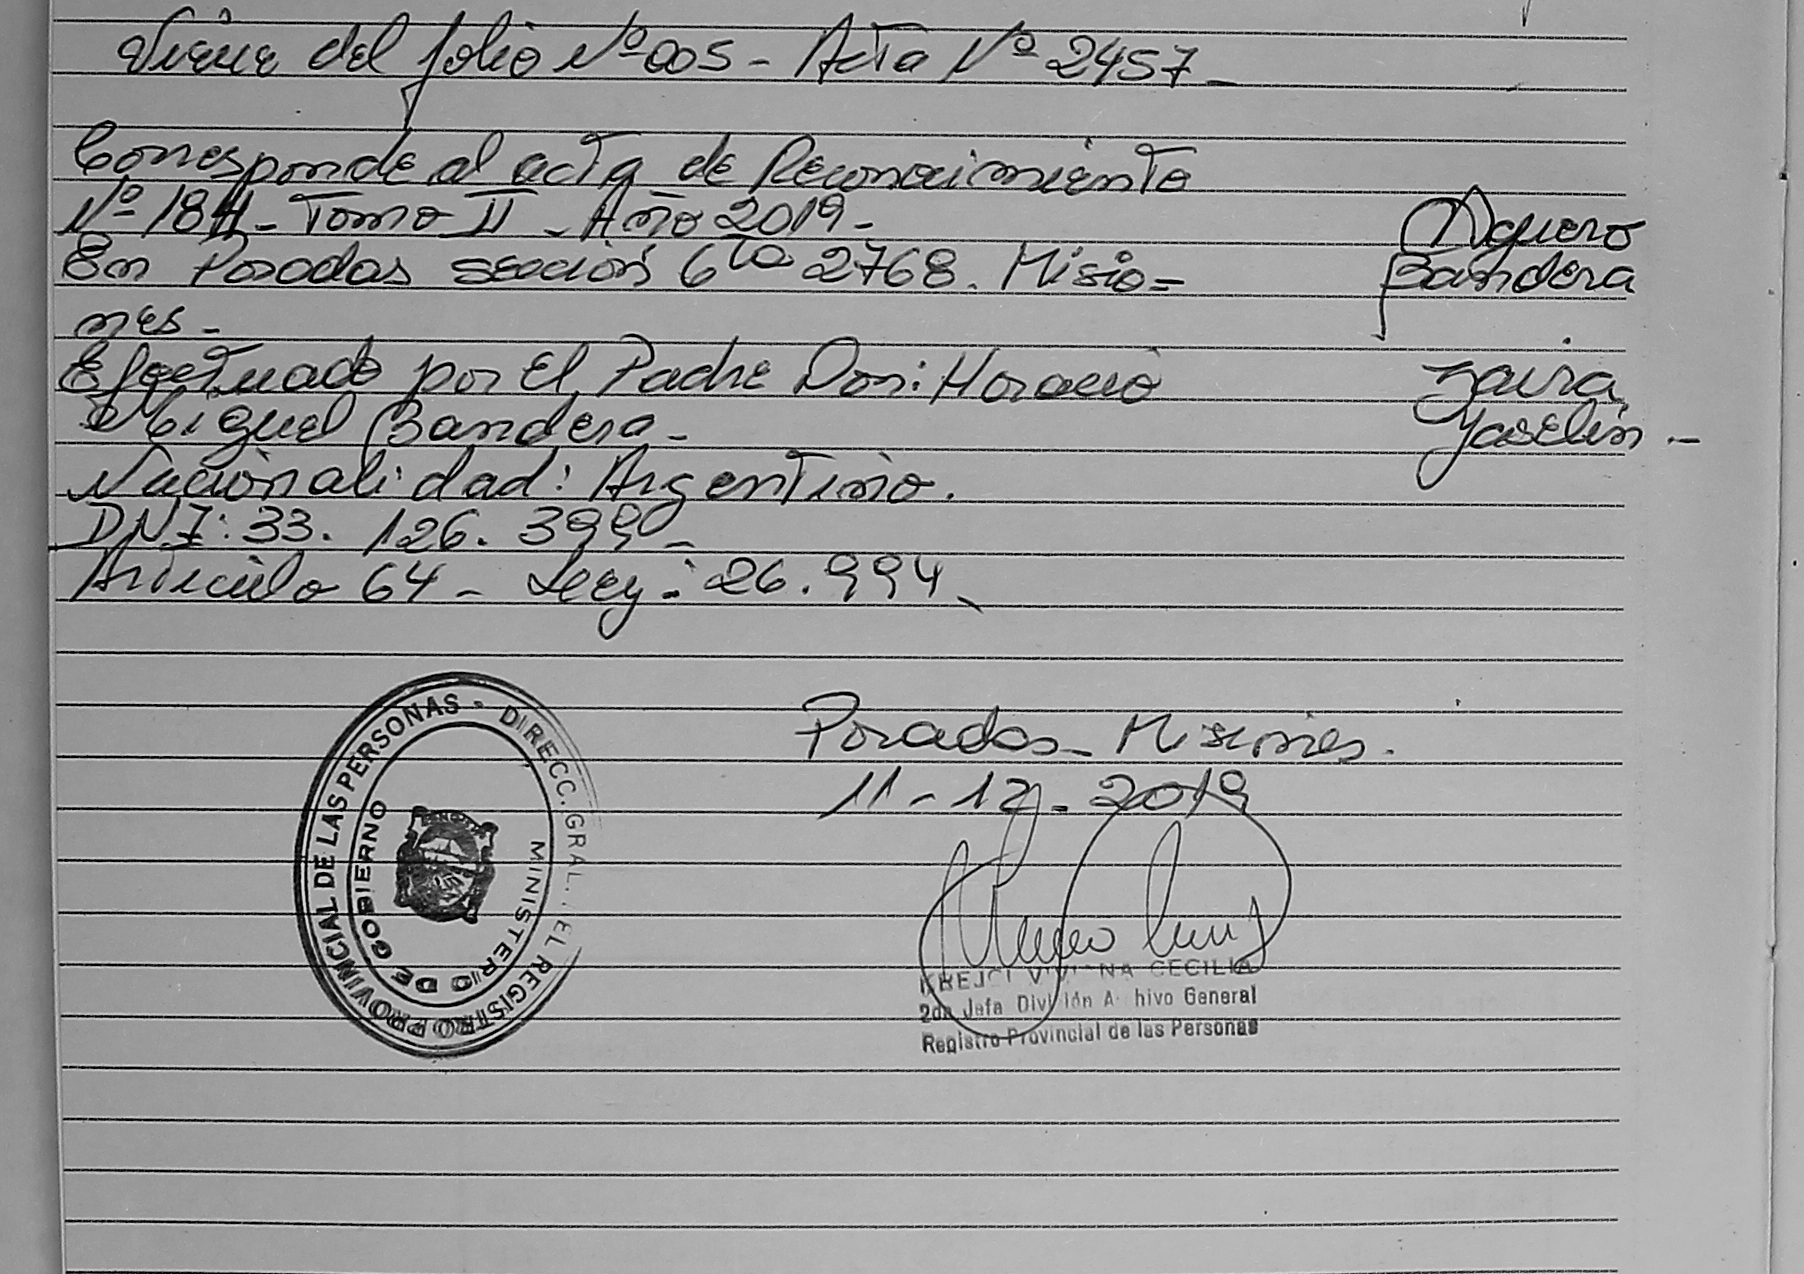 Viene del folio Nº 005 - Acta Nº 2457 -
Corresponde al acta de Reconocimiento
Nº - Tomo II - Año 2019 -
En Posadas sección 6ta 2768. Misio=
nes -
Efectuado por El Padre Don: Horacio
Miguel Bandera -
Nacionalidad: Argentino.
DNI: 33. 126. -
Articulo 64 - Ley: 26.994 -
Aguero
Bandera
Zaira
Yoselin -
Posadas - Misiones.
11 - 12 - 2019
REGISTRO PROVINCIAL DE LAS PERSONAS - DIRECC. GRAL.
MINISTERIO DE GOBIERNO
CECILIA
2da Jefa General
Registro Provincial de las Personas